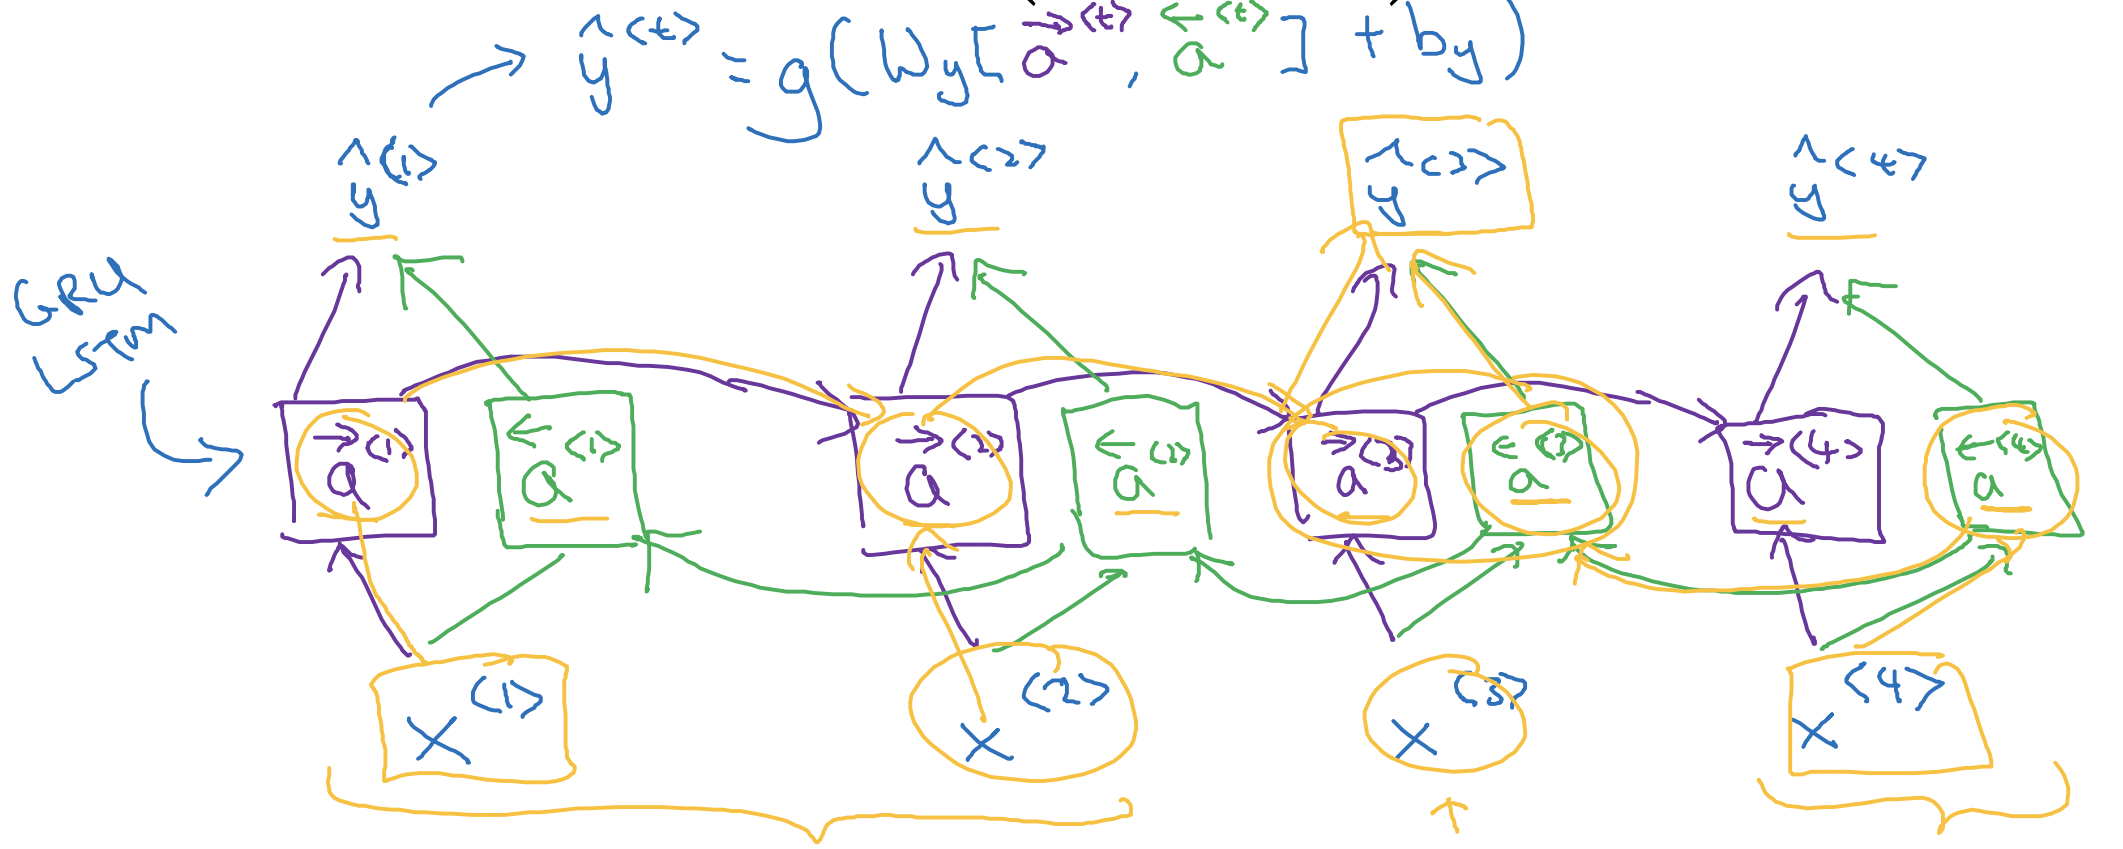 ŷ^<t> = g(Wy[a→^<t>, a←^<t>] + by)
ŷ^<1> ŷ^<2> ŷ^<3> ŷ^<4>
GRU
LSTM
a→^<1> a←^<1> a→^<2> a←^<2> a→^<3> a←^<3> a→^<4> a←^<4>
x^<1> x^<2> x^<3> x^<4>